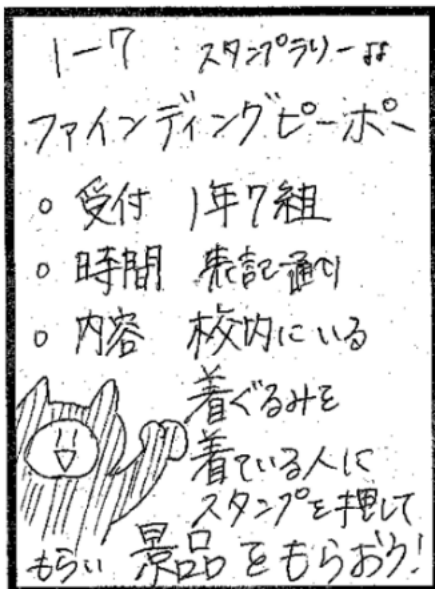 1-7 スタンプラリー
ファインディングピーポー
○ 受付 1年7組
○ 時間 表記通り
○ 内容 校内にいる
着ぐるみを
着ている人に
スタンプを押して
もらい 景品をもらおう!